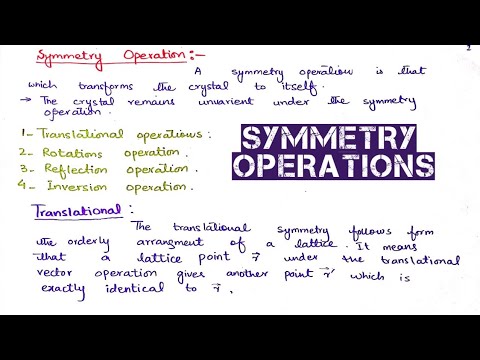 2
Symmetry Operation:-
A symmetry operation is that
which transforms the crystal to itself.
→ The crystal remains unvarient under the symmetry
operation.
1- Translational operations:
2- Rotations operation.
3- Reflection operation.
4- Inversion operation.
SYMMETRY
OPERATIONS
Translational:
The translational symmetry follows form
the orderly arrangment of a lattice. It means
that a lattice point r⃗ under the translational
vector operation gives another point r⃗' which is
exactly identical to r⃗.